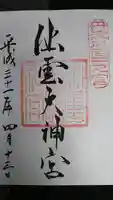 出雲大神宮
平成三十一年 四月十三日